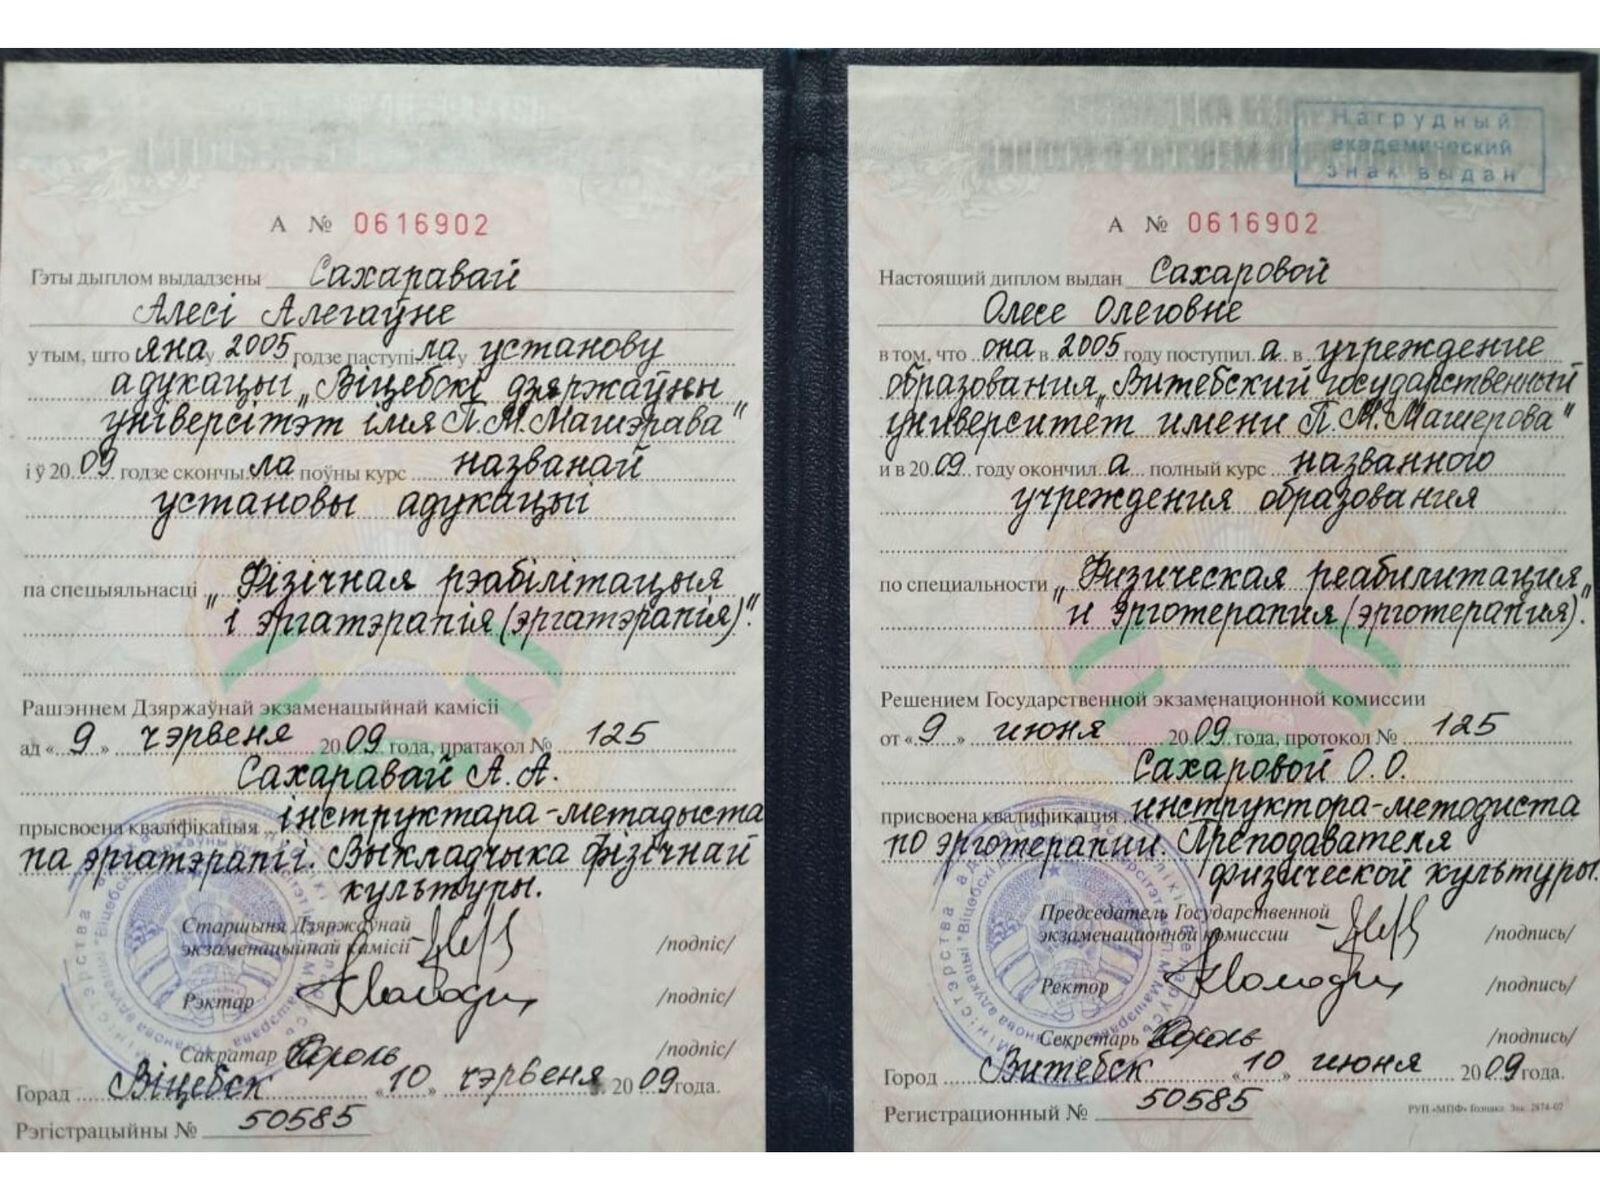 А № 0616902
Гэты дыплом выдадзены Сахаравай
Алесі Алегаўне
у тым, што яна у 2005 годзе паступіла у установу
адукацыі „Віцебскі дзяржаўны
універсітэт імя П.М.Машэрава"
і ў 2009 годзе скончыла поўны курс названай
установы адукацыі
па спецыяльнасці „Фізічная рэабілітацыя
і эргатэрапія (эргатэрапія)."
Рашэннем Дзяржаўнай экзаменацыйнай камісіі
ад «9» чэрвеня 2009 года, пратакол № 125
Сахаравай А.А.
прысвоена кваліфікацыя інструктара-метадыста
па эргатэрапіі. Выкладчыка фізічнай
культуры.
Старшыня Дзяржаўнай
экзаменацыйнай камісіі /подпіс/
Рэктар /подпіс/
Сакратар Кароль /подпіс/
Горад Віцебск «10» чэрвеня 2009 года.
Рэгістрацыйны № 50585
Нагрудный
академический
знак выдан
А № 0616902
Настоящий диплом выдан Сахаровой
Олесе Олеговне
в том, что она в 2005 году поступила в учреждение
образования „Витебский государственный
университет имени П.М.Машерова"
и в 2009 году окончила полный курс названного
учреждения образования
по специальности „Физическая реабилитация
и эрготерапия (эрготерапия)."
Решением Государственной экзаменационной комиссии
от «9» июня 2009 года, протокол № 125
Сахаровой О.О.
присвоена квалификация инструктора-методиста
по эрготерапии. Преподавателя
физической культуры.
Председатель Государственной
экзаменационной комиссии /подпись/
Ректор /подпись/
Секретарь Король /подпись/
Город Витебск «10» июня 2009 года.
Регистрационный № 50585
РУП «МПФ» Гознака. Зак. 2874-07